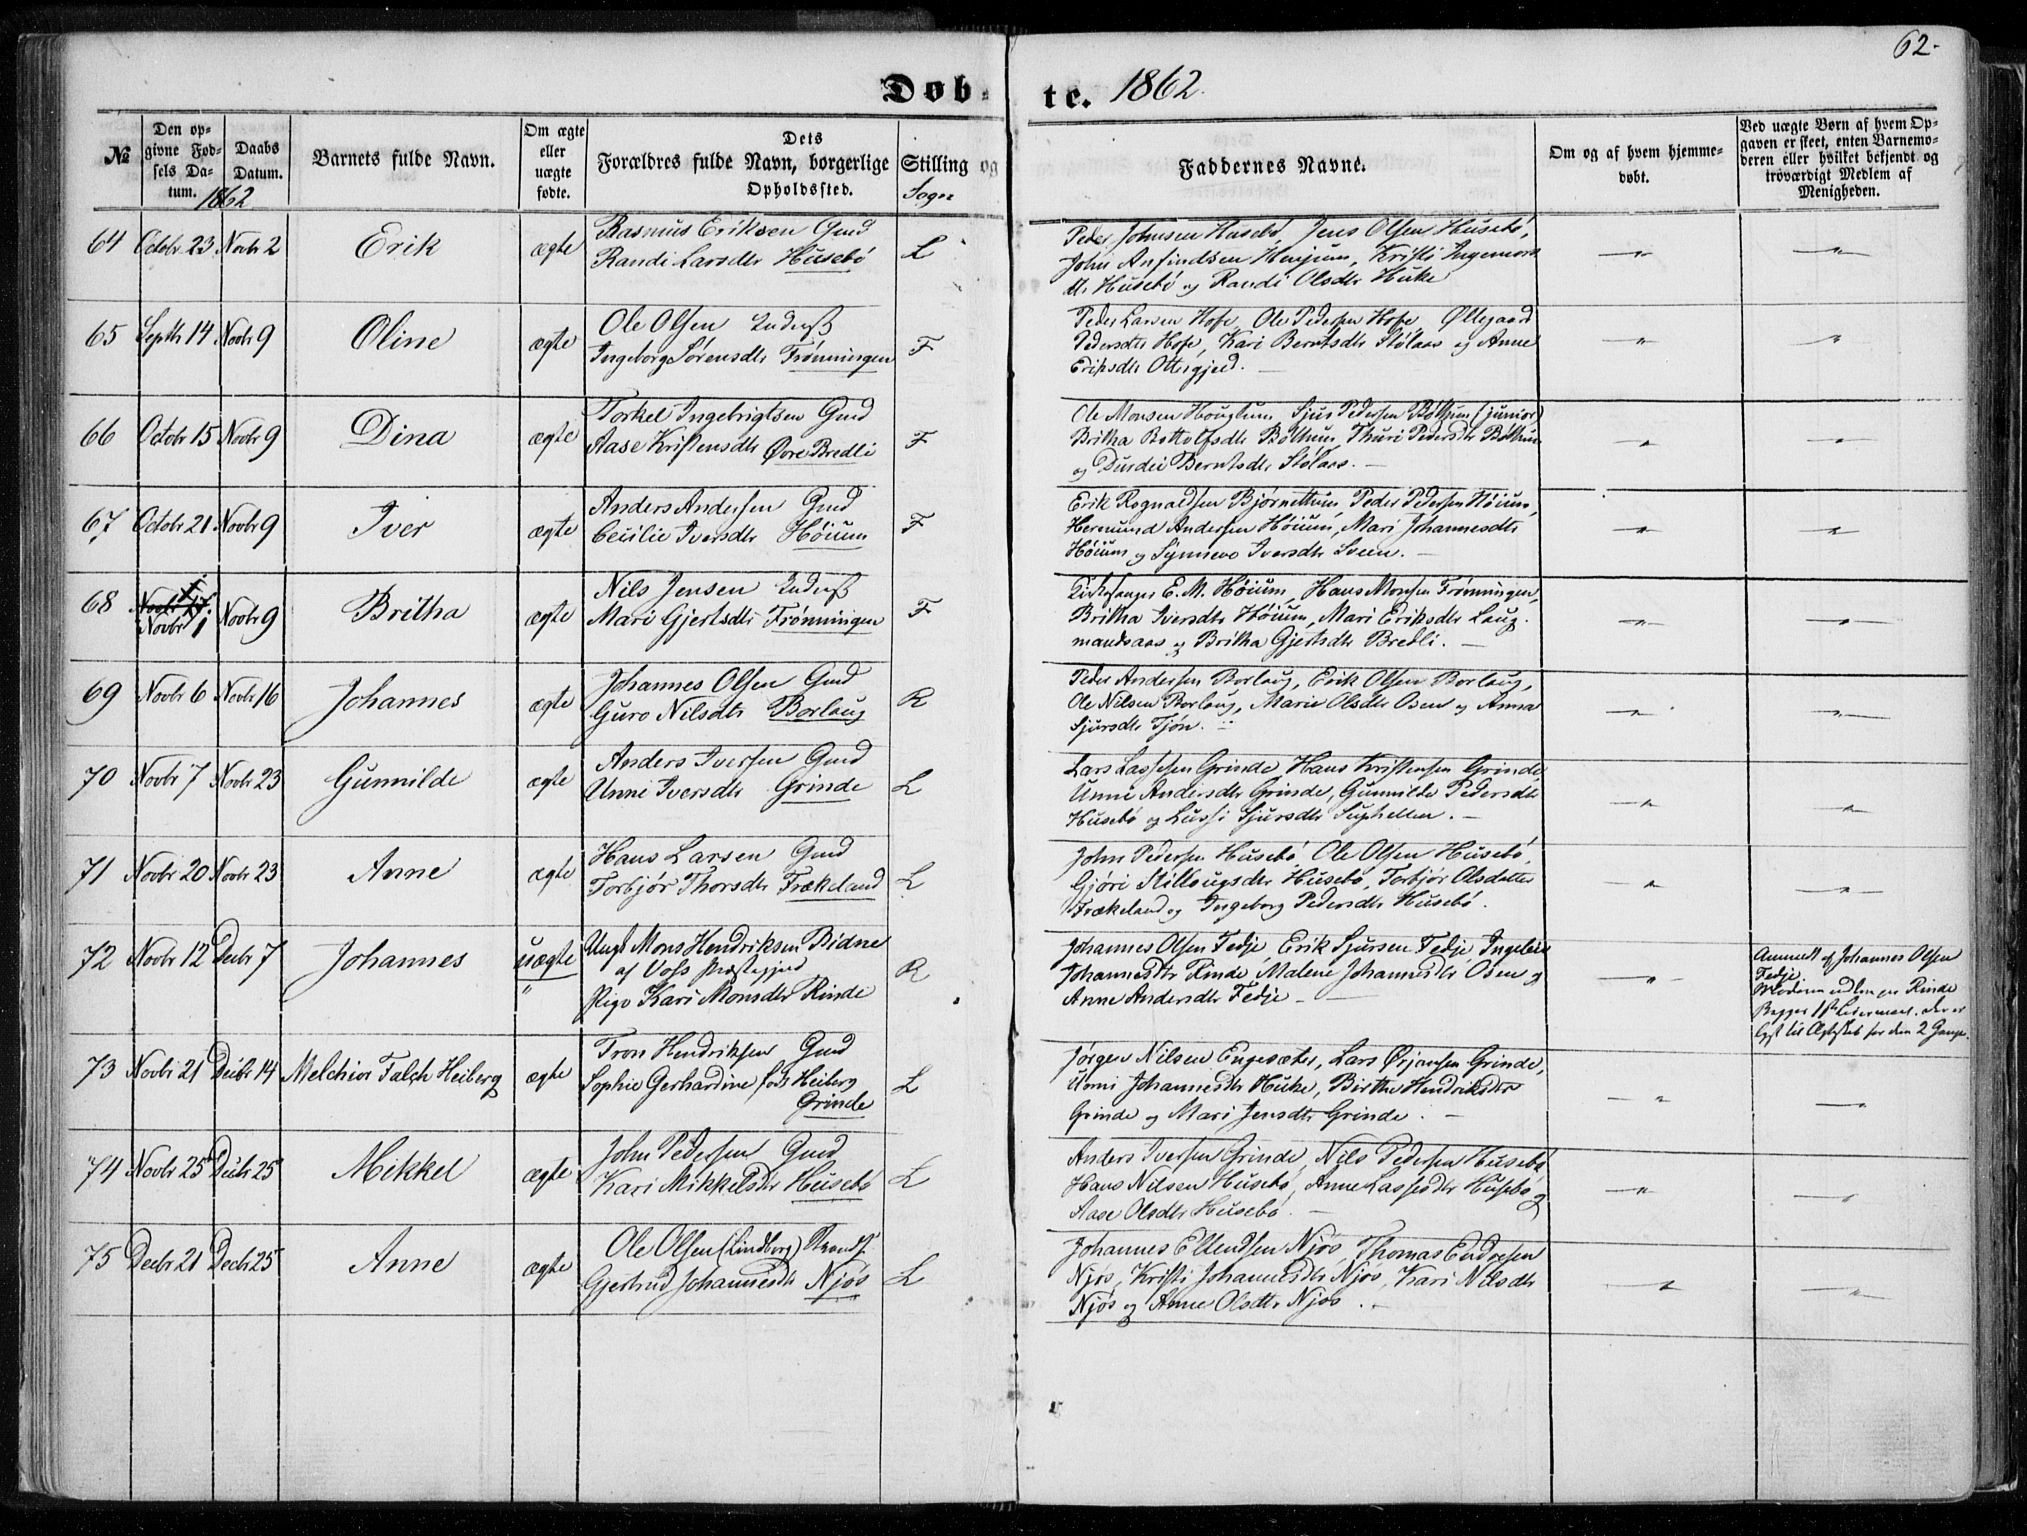 62.
Døb-
te. 1862.
№
Den op-
givne Fød-
sels Da-
tum.
1862
Daabs
Datum.
Barnets fulde Navn.
Om ægte
eller
uægte
fødte.
Dets
Forældres fulde Navn, borgerlige Stilling og
Opholdssted.
Sogn
Faddernes Navne.
Om og af hvem hjemme-
døbt.
Ved uægte Børn af hvem Op-
gaven er skeet, enten Barnemo-
deren eller hvilket bekjendt og
troværdigt Medlem af
Menigheden.
64 Octobr 23 Novbr 2 Erik ægte
Rasmus Eriksen Gmd
Randi Larsdtr Husebø L
Peder Johnsen Husebø, Jens Olsen Husebø,
John Anfindsen Henjum, Kristi Ingemors
dtr Husebø og Randi Olsdtr Huke
65 Septbr 14 Novbr 9 Oline ægte
Ole Olsen Inderst
Ingeborg Sørensdtr Frønningen F
Peder Larsen Hofe, Ole Pedersen Hofe, Øllegaard
Pedersdtr Hofe, Kari Berntsdtr Stølaas og Anne
Eriksdtr Ottergjeld.
66 Octobr 15 Novbr 9 Dina ægte
Torkel Ingebrigtsen Gmd
Aase Kristensdtr Øvre Bredli F
Ole Monsen Hougtum, Sjur Pedersen Bøthun (junior)
Britha Bottolfsdtr Bøthun, Thuri Pedersdtr Bøthun
og Durdei Berntsdtr Stølaas.
67 Octobr 21 Novbr 9 Iver ægte
Anders Andersen Gmd
Cecilie Iversdtr Høium F
Erik Rognaldsen Bjørnettun, Peder Pedersen Høium,
Hermund Andersen Høium, Mari Johannesdtr
Høium og Synneve Iversdtr Svein.
68 Novbr 1 Novbr 9 Britha ægte
Nils Jensen Inderst
Mari Gjertsdtr Frønningen F
Kirkesanger E. M. Høium, Hans Monsen Frønningen,
Britha Iversdtr Høium, Mari Eriksdtr Laug-
mandsaas og Britha Gjertsdtr Bredli.
69 Novbr 6 Novbr 16 Johannes ægte
Johannes Olsen Gmd
Guro Nilsdtr Borlaug R
Peder Andersen Borlaug, Erik Olsen Borlaug,
Ole Nilsen Borlaug, Marie Olsdtr Osen og Anna
Sjursdtr Tjøn.
70 Novbr 7 Novbr 23 Gunnilde ægte
Anders Iversen Gmd
Unni Iversdtr Grinde L
Lars Lassesen Grinde, Hans Kristensen Grinde
Unni Andersdtr Grinde, Gunnilde Pedersdtr
Husebø og Lussi Sjursdtr Suphellen.
71 Novbr 20 Novbr 23 Anne ægte
Hans Larsen Gmd
Torbjør Thorsdtr Frækeland L
John Pedersen Husebø, Ole Olsen Husebø,
Gjøri Stillougsdtr Husebø, Torbjør Olsdatter
Frækeland og Ingeborg Pedersdtr Husebø.
72 Novbr 12 Decbr 7 Johannes uægte
Ungk Mons Hendriksen Bidne
af Voss Præstegjeld
Pige Kari Monsdtr Rinde R
Johannes Olsen Fedje, Erik Sjursen Fedje, Ingeleiv
Johannesdtr Rinde, Malene Johannesdtr Osen og
Anne Andersdtr Fedje
Anmeldt af Johannes Olsen
Fedje.
Rinde
Begges 1ste Leiermaal. der er
lyst til Ægteskab for dem 2 Gange.
73 Novbr 21 Decbr 14 Melchior Falch Heiberg ægte
Tron Hendriksen Gmd
Sophie Gerhardine født Heiberg
Grinde L
Jørgen Nilsen Engesæter, Lars Ørjansen Grinde,
Unni Johannesdtr Huke, Birthe Hendriksdtr
Grinde og Mari Jensdtr Grinde.
74 Novbr 25 Decbr 25 Mikkel ægte
John Pedersen Gmd
Kari Mikkelsdtr Husebø L
Anders Iversen Grinde, Nils Pedersen Husebø
Hans Nilsen Husebø, Anne Lassesdtr Husebø og
Aase Olsdtr Husebø.
75 Decbr 21 Decbr 25 Anne ægte
Ole Olsen (Lindborg) Strands.
Gjertrud Johannesdtr Njøs L
Johannes Ellendsen Njøs, Thomas Endresen
Njøs, Kristi Johannesdtr Njøs, Kari Nilsdtr
Njøs og Anne Olsdtr Njøs.